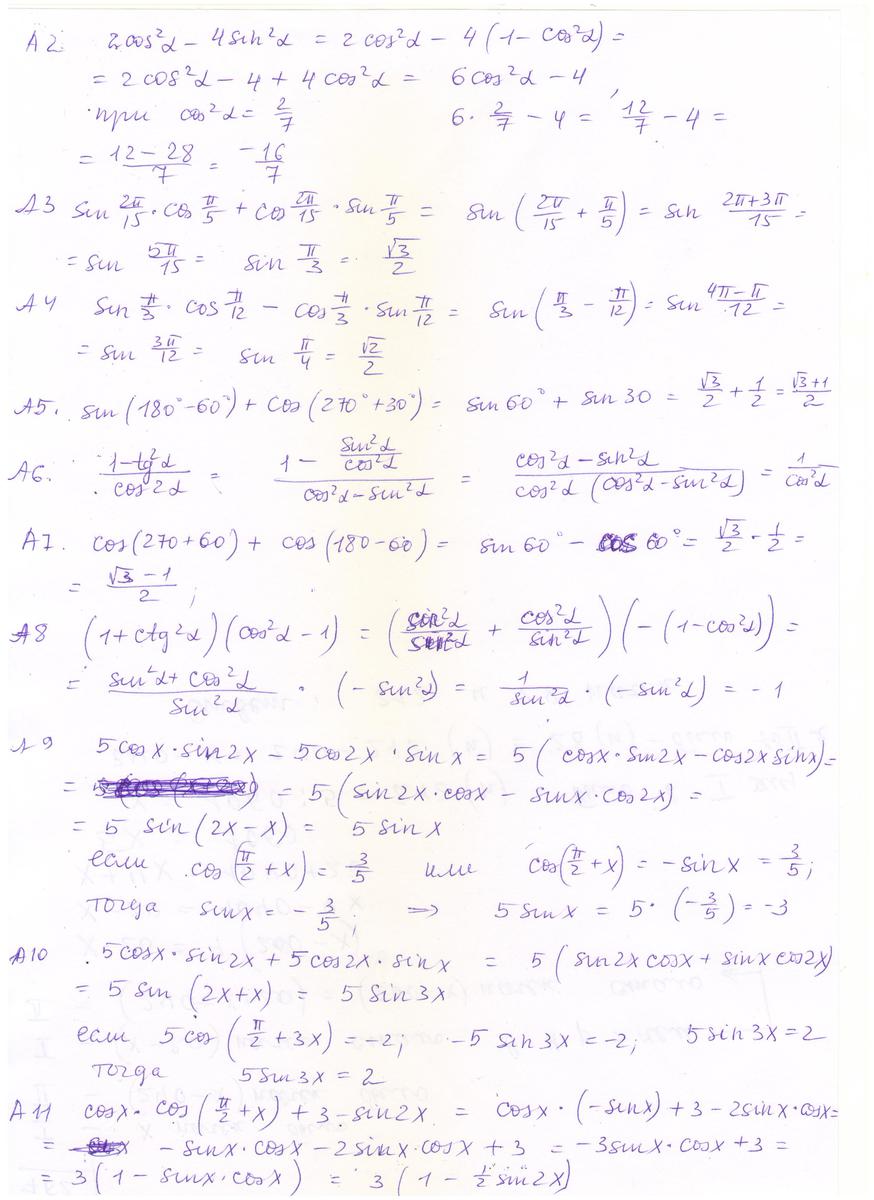 A2. 2cos²α – 4sin²α = 2cos²α – 4(1 – cos²α) =
= 2cos²α – 4 + 4cos²α = 6cos²α – 4
при cos²α = 2/7 6 · 2/7 – 4 = 12/7 – 4 =
= (12 – 28)/7 = –16/7
A3 sin 2π/15 · cos π/5 + cos 2π/15 · sin π/5 = sin (2π/15 + π/5) = sin (2π+3π)/15 =
= sin 5π/15 = sin π/3 = √3/2
A4 sin π/3 · cos π/12 – cos π/3 · sin π/12 = sin (π/3 – π/12) = sin (4π–π)/12 =
= sin 3π/12 = sin π/4 = √2/2
A5. sin(180°–60°) + cos(270°+30°) = sin 60° + sin 30 = √3/2 + 1/2 = (√3+1)/2
A6. (1–tg²α)/(cos2α) = (1 – sin²α/cos²α)/(cos²α–sin²α) = (cos²α–sin²α)/(cos²α(cos²α–sin²α)) = 1/cos²α
A7. cos(270+60) + cos(180–60) = sin 60° – cos 60° = √3/2 - 1/2 =
= (√3 – 1)/2 ;
A8 (1+ctg²α)(cos²α – 1) = (sin²α/sin²α + cos²α/sin²α)(–(1–cos²α)) =
= (sin²α + cos²α)/sin²α · (– sin²α) = 1/sin²α · (– sin²α) = – 1
A9 5cosx · sin2x – 5cos2x · sinx = 5(cosx · sin2x – cos2x sinx) =
= = 5(sin2x · cosx – sinx · cos2x) =
= 5 sin(2x – x) = 5 sin x
если cos(π/2 + x) = 3/5 или cos(π/2 + x) = – sinx = 3/5;
тогда sinx = – 3/5; ⇒ 5 sinx = 5 · (–3/5) = –3
A10 5cosx · sin2x + 5cos2x · sinx = 5(sin2x cosx + sinx cos2x)
= 5 sin (2x+x) = 5 sin 3x
если 5cos(π/2 + 3x) = –2; –5 sin 3x = –2; 5 sin 3x = 2
тогда 5 sin 3x = 2
A11 cosx · cos(π/2 + x) + 3 – sin2x = cosx · (–sinx) + 3 – 2sinx · cosx =
= – sinx · cosx – 2sinx · cosx + 3 = –3sinx · cosx + 3 =
= 3(1 – sinx · cosx) = 3(1 – 1/2 sin2x)